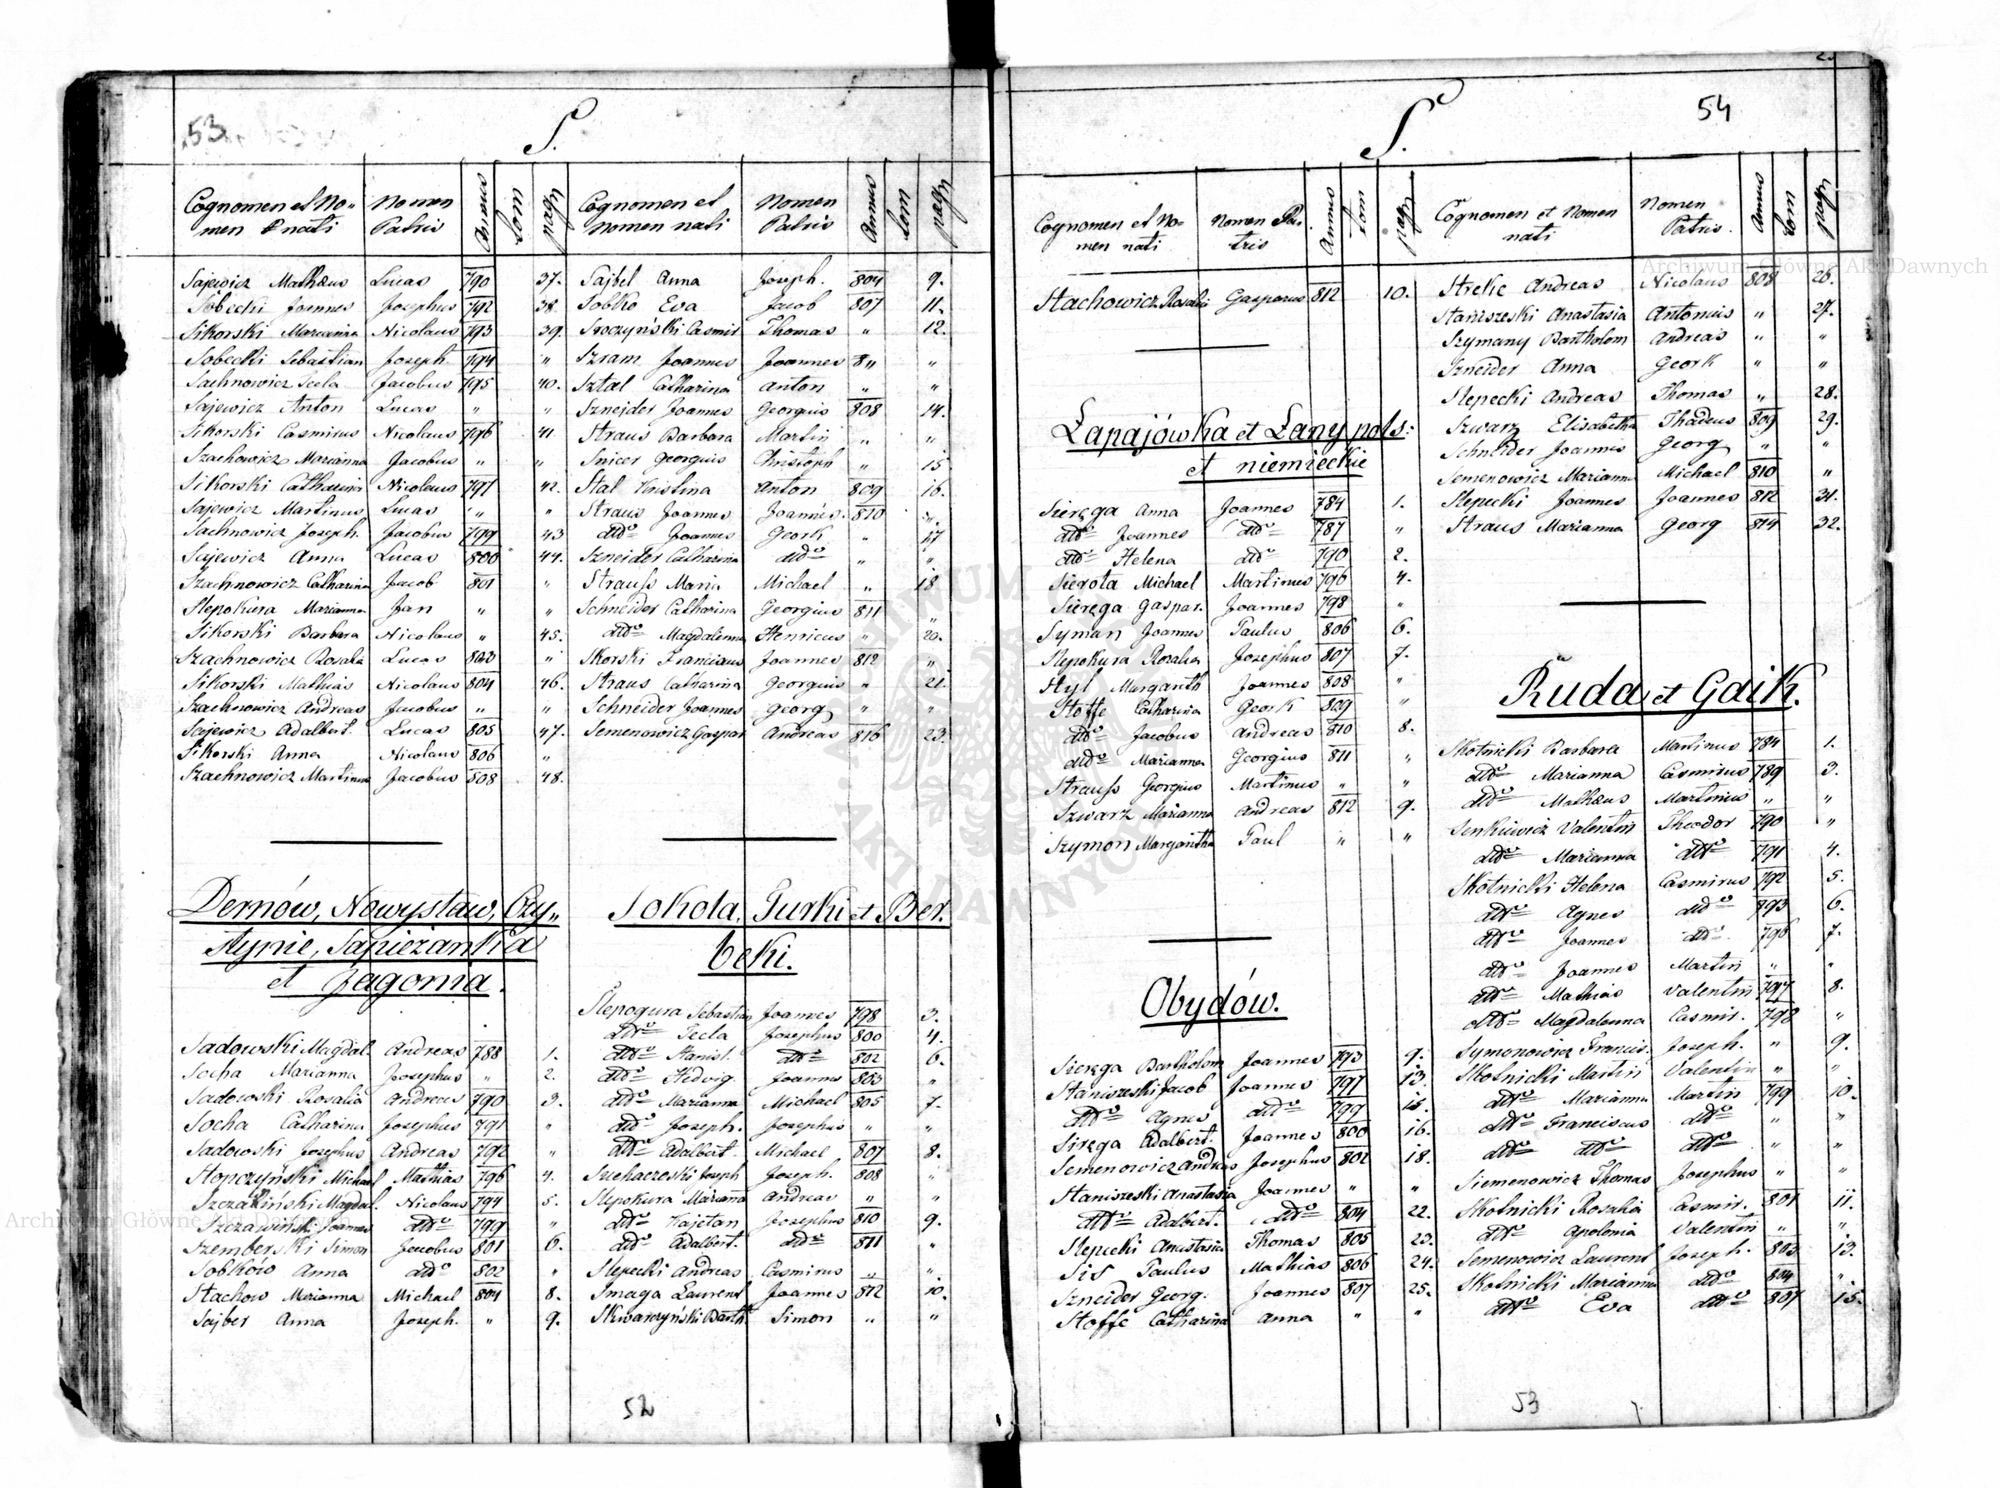 53
S.
Cognomen et No- Nomen Annus tom pagn Cognomen et Nomen Annus tom pagn
men nati Patris nomen nati Patris
Sajewicz Mathæus Lucas 790 37.
Sobecki Joannes Josephus 792 38.
Sikorski Marianna Nicolaus 793 39.
Sobecki Sebastian Joseph. 794 "
Sachnowicz Tecla Jacobus 795 40.
Sajewicz Anton Lucas " "
Sikorski Casmirus Nicolaus 796 41.
Szachowicz Marianna Jacobus " "
Sikorski Catharina Nicolaus 797 42.
Sajewicz Martinus Lucas " "
Sachnowicz Joseph. Jacobus 799 43
Sajewicz Anna Lucas 800 44.
Szachnowicz Catharina Jacob 801 "
Slepokura Marianna Jan " "
Sikorski Barbara Nicolaus " 45.
Szachnowicz Rosalia Lucas 803 "
Sikorski Mathias Nicolaus 804 46.
Szachnowicz Andreas Jacobus " "
Sajewicz Adalbert. Lucas 805 47.
Sikorski Anna Nicolaus 806 "
Szachnowicz Martinus Jacobus 808 48.
Dernów, Nowystaw, Czy„
stynie, Sapiezanka
et Jagonia.
Sadowski Magdal. Andreas 788 1.
Socha Marianna Josephus " 2.
Sadowski Rosalia Andreas 790 3.
Socha Catharina Josephus 791 "
Sadowski Josephus Andreas 792 "
Stopczyński Michael Mathias 796 4.
Szczawiński Magdal. Nicolaus 794 5.
Szczawiński Joannes dtto 799 "
Szemberski Simon Jacobus 801 6.
Sobków Anna dtto 802 "
Stachow Marianna Michael 804 8.
Sajber Anna Joseph. " 9.
Sajbel Anna Joseph. 804 9.
Sobko Eva Jacob 807 11.
Sroczyński Casmir Thomas " 12.
Szram Joannes Joannes 8" "
Sztal Catharina Anton " "
Szneider Joannes Georgius 808 14.
Straus Barbara Martin " "
Snicer Georgius Christoph " 15
Stal Kristina Anton 809 16.
Straus Joannes Joannes. 810 "
dtto Joannes Geork " 17
Szneider Catharina dtto " "
Strauss Maria Michael " 18
Schneider Catharina Georgius 811 "
dtto Magdalenna Henricus " 20.
Skorski Franciscus Joannes 812 "
Straus Catharina Georgius " 21.
Schneider Joannes Georg " "
Semenowicz Gaspar Andreas 816 23.
Sokola, Turki et Ber.
beki.
Slepogura Sebastian Joannes 798 3.
dtto Tecla Josephus 800 4.
dtto Stanisl. dtto 802 6.
dtto Hedvig. Joannes 803 "
dtto Marianna Michael 805 7.
dtto Joseph. Josephus " "
dtto Adalbert. Michael 807 8.
Suchaczeski Joseph Joseph. 808 "
Slepokura Marianna Andreas " "
dtto Kajetan Josephus 810 9.
dtto Adalbert. dtto 811 "
Slepecki Andreas Casmirus " "
Smaga Laurent Joannes 812 10.
Skwarczyński Barth. Simon " "
52
54
S.
Cognomen et No- Nomen Pa- Annus tom pagn Cognomen et Nomen Nomen Annus tom pagn
men nati tris nati Patris.
Stachowicz Rosalia Gasparus 812 10.
Łapajówka et Łany pols:
et niemieckie
Sieręga Anna Joannes 784 1.
dtto Joannes dtto 787 "
dtto Helena dtto 790 2.
Siegota Michael Martinus 796 4.
Sieręga Gaspar. Joannes 798 "
Syman Joannes Paulus 806 6.
Slepokura Rosalia Josephus 807 7.
Styl Margareth Joannes 808 "
Stoffe Catharina Geork 809 "
dtto Jacobus Andreas 810 8.
dtto Marianna Georgius 811 "
Strauss Georgius Martinus " "
Szwarz Marianna Andreas 812 9.
Szymon Margaritha Paul " "
Obydów.
Sieręga Bartholom Joannes 793 9.
Staniszeski Jacob Joannes 797 13.
dtto Agnes dtto 799 15.
Siręga Adalbert. Joannes 800 16.
Semenowicz Andreas Josephus 802 18.
Staniszeski Anastasia Joannes " "
dtto Adalbert. dtto 804 22.
Slepecki Anastasia Thomas 805 23.
Sis Paulus Mathias 806 24.
Szneider Georg. Joannes 807 25.
Stoffe Catharina Anna " "
Strelic Andreas Nicolaus 808 26.
Staniszeski Anastasia Antonius " 27.
Szymany Bartholom Andreas " "
Szneider Anna Geork " "
Slepecki Andreas Thomas " 28.
Szwarz Elisabetha Thadeus 809 29.
Schneider Joannes Georg " "
Semenowicz Marianna Michael 810 "
Slepecki Joannes Joannes 812 31.
Straus Marianna Georg 814 32.
Ruda et Gaik.
Skotnicki Barbara Martinus 784 1.
dtto Marianna Casmirus 789 3.
dtto Mathæus Martinus " "
Senkiewicz Valentin Theodor 790 "
dtto Marianna dtto 791 4.
Skotnicki Helena Casmirus 792 5.
dtto Agnes dtto 793 6.
dtto Joannes dtto 796 7.
dtto Joannes Martin " "
dtto Mathias Valentin 797 8.
dtto Magdalenna Casmir. 798 "
Symonowicz Francis. Joseph. " 9.
Skotnicki Martin Valentin " "
dtto Marianna Martin 799 10.
dtto Franciscus dtto " "
dtto dtto dtto " "
Siemenowicz Thomas Josephus " "
Skotnicki Rosalia Casmir. 801 11.
dtto Apolonia Valentin " "
Semenowicz Laurent Joseph. 803 13.
Skotnicki Marianna dtto 804 "
dtto Eva dtto 807 15.
53
Archiwum Główne Akt Dawnych